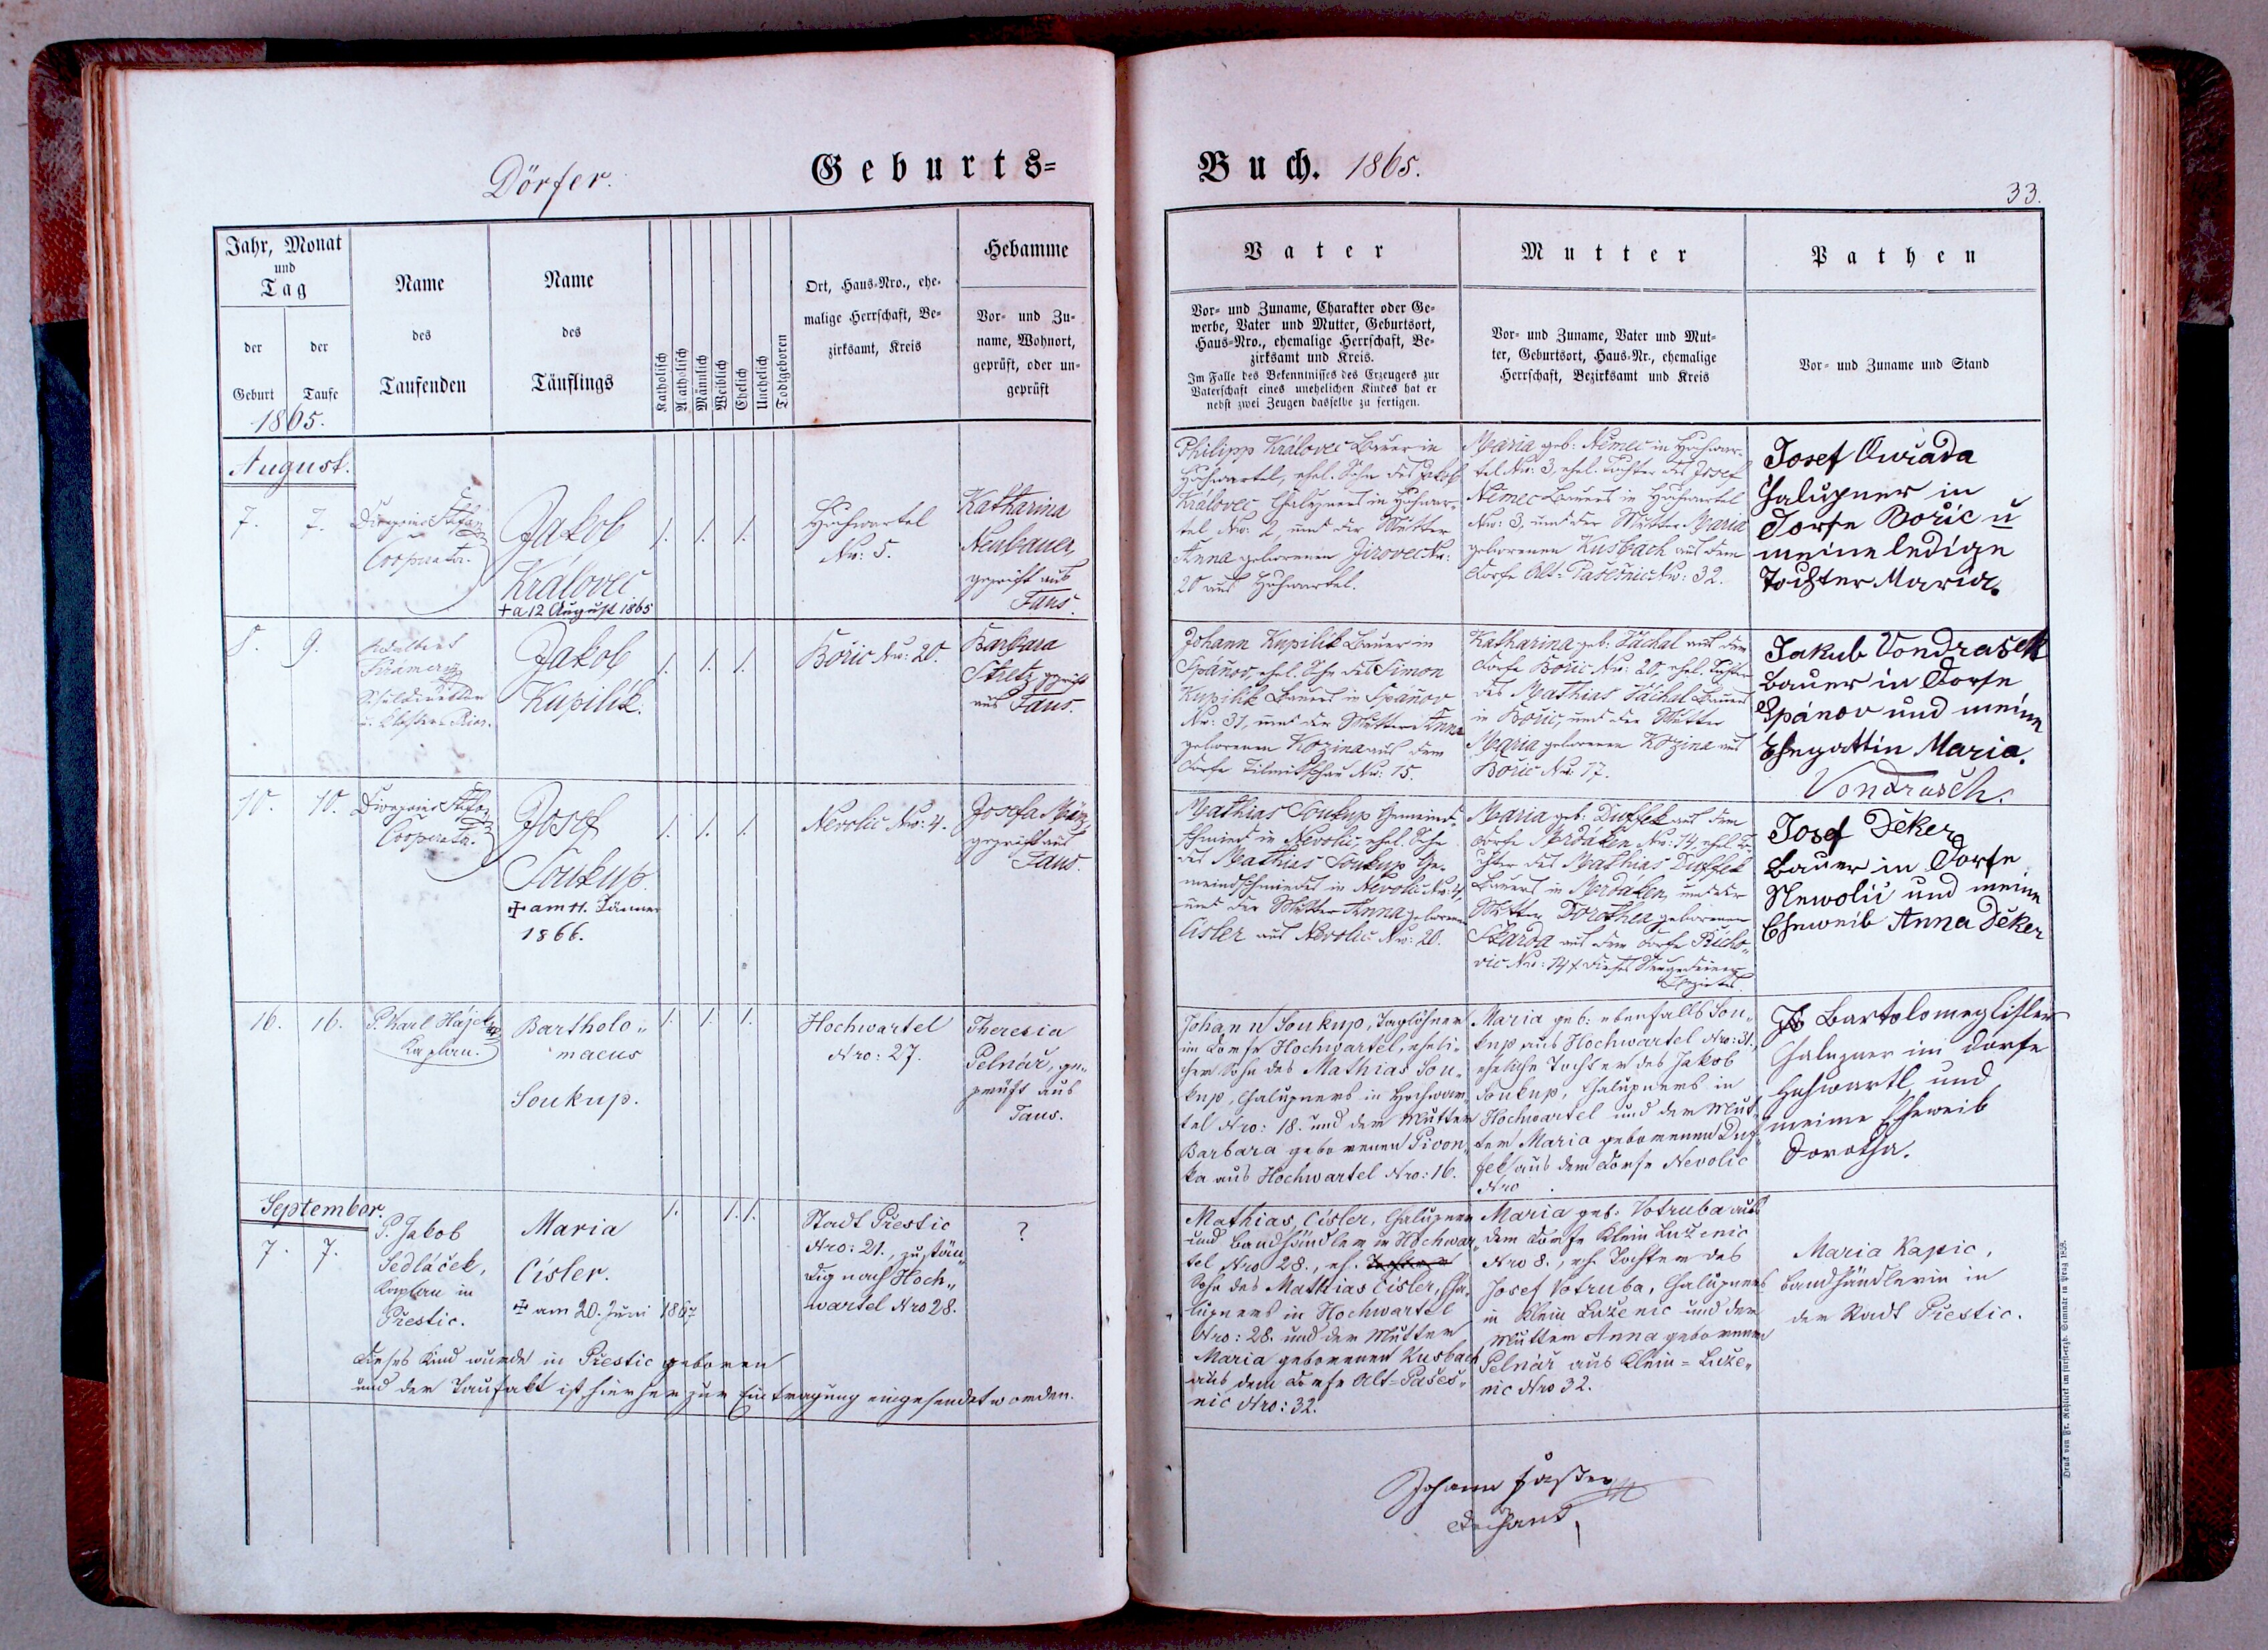 Dörfer.
Geburts=
Buch. 1865.
33.
Jahr, Monat
und
Tag
der
Geburt
der
Taufe
1865.
Name
des
Taufenden
Name
des
Täuflings
Katholisch
Akatholisch
Männlich
Weiblich
Ehelich
Unehelich
Todtgeboren
Ort, Haus-Nro., ehe-
malige Herrschaft, Be-
zirksamt, Kreis
Hebamme
Vor- und Zu-
name, Wohnort,
geprüft, oder un-
geprüft
Vater
Vor- und Zuname, Charakter oder Ge-
werbe, Vater und Mutter, Geburtsort,
Haus-Nro., ehemalige Herrschaft, Be-
zirksamt und Kreis.
Im Falle des Bekenntnisses des Erzeugers zur
Vaterschaft eines unehelichen Kindes hat er
nebst zwei Zeugen dasselbe zu fertigen.
Mutter
Vor- und Zuname, Vater und Mut-
ter, Geburtsort, Haus-Nr., ehemalige
Herrschaft, Bezirksamt und Kreis
Pathen
Vor- und Zuname und Stand
August.
7.
7.
Cooperator.
Jakob
Královec
+ a 12 August 1865
1. 1. 1.
Hochwartel
Nro: 5.
Katharina
Neubauer,
geprüft aus
Taus.
Philipp Královec Bauer in
Hochwartel, ehel. Sohn des Jakob
Královec, Chalupners in Hochwar-
tel Nro: 2, und der Mutter
Anna geborenen Jirovec Nro:
20 aus Hochwartel.
Maria geb: Němec in Hochwar-
tel Nro: 3, ehel. Tochter des Josef
Němec Bauers in Hochwartel
Nro: 3, und der Mutter Maria
geborenen Kusbach aus dem
Dorfe Alt-Pašešnic Nro: 32.
Josef
Chalupner in
Dorfe Bořic u
meine ledige
Tochter Maria.
8.
9.
Adalbert
Jakob
Kupilík.
1. 1. 1.
Bořic Nro: 20.
Barbara
geprüft
aus Taus.
Johann Kupilík Bauer in
Spáňov, ehel. Sohn des Simon
Kupilík Bauers in Spáňov
Nro: 31, und der Mutter Anna
geborenen Kozina aus dem
Dorfe Tilmitschau Nro: 15.
Katharina geb: Váchal aus dem
Dorfe Bořic Nro: 20, ehel. Tochter
des Mathias Váchal Bauers
in Bořic, und der Mutter
Maria geborenen Kozina aus
Bořic Nro: 17.
Jakub Vondrasek
Bauer in Dorfe
Spánov und meine
Ehegattin Maria.
Vondrasch.
10.
10.
Cooperator.
Josef
Soukup.
+ am 11. Jänner
1866.
1. 1. 1.
Nevolic Nro: 4.
Josefa
geprüft aus
Taus.
Mathias Soukup Gemeind-
schmied in Nevolic, ehel. Sohn
des Mathias Soukup Ge-
meindschmiedes in Nevolic Nro: 4,
und der Mutter Anna geborenen
Cisler aus Nevolic Nro: 20.
Maria geb: Duffek aus dem
Dorfe Mrdáken Nro: 14, ehel. To-
chter des Mathias Duffek
Bauers in Mrdáken, und der
Mutter Dorothea geborenen
Škarda aus dem Dorfe
Josef Děker
Bauer in Dorfe
Newolić und meine
Eheweib Anna Děker
16.
16.
P. Karl Hájek
Kaplan.
Bartholo-
maeus
Soukup.
1. 1. 1.
Hochwartel
Nro: 27.
Theresia
Pelnář, ge-
prüft aus
Taus.
Johann Soukup, Taglöhner
im Dorfe Hochwartel, eheli-
cher Sohn des Mathias Sou-
kup, Chalupners in Hochwar-
tel Nro: 18. und der Mutter
Barbara geborenen Pivon-
ka aus Hochwartel Nro: 16.
Maria geb: ebenfalls Sou-
kup aus Hochwartel Nro: 31.,
eheliche Tochter des Jakob
Soukup, Chalupners in
Hochwartel und der Mut-
ter Maria geborenen Duf-
fek aus dem Dorfe Nevolic
Nro .
Bartolomeg Cisler
Chalupner im Dorfe
Hohwartl und
meine Eheweib
Dorotha.
September.
7.
7.
P. Jakob
Sedláček,
Kaplan in
Přestic.
Maria
Cisler.
+ am 20. Juni 1867
1. 1. 1.
Stadt Přestic
Nro: 21., zustän-
dig nach Hoch-
wartel Nro 28.
?
Dieses Kind wurde in Přestic geboren
und der Taufakt ist hierher zur Eintragung eingesendet worden.
Mathias Cisler, Chalupner
und Bandhändler in Hochwar-
tel Nro 28., eh.
Sohn des Mathias Cisler, Cha-
lupners in Hochwartel
Nro: 28. und der Mutter
Maria geborenen Kusbach
aus dem Dorfe Alt-Pašeš-
nic Nro: 32.
Maria geb: Votruba aus
dem Dorfe Klein Luženic
Nro 8., eh. Tochter des
Josef Votruba, Chalupners
in Klein Luženic und der
Mutter Anna geborenen
Pelnář aus Klein-Luže-
nic Nro 32.
Maria Kapic,
Bandhändlerin in
der Stadt Přestic.
Johann
Dechant
Druck von Fr. Rohliček im fürsterzb. Seminär in Prag 1858.